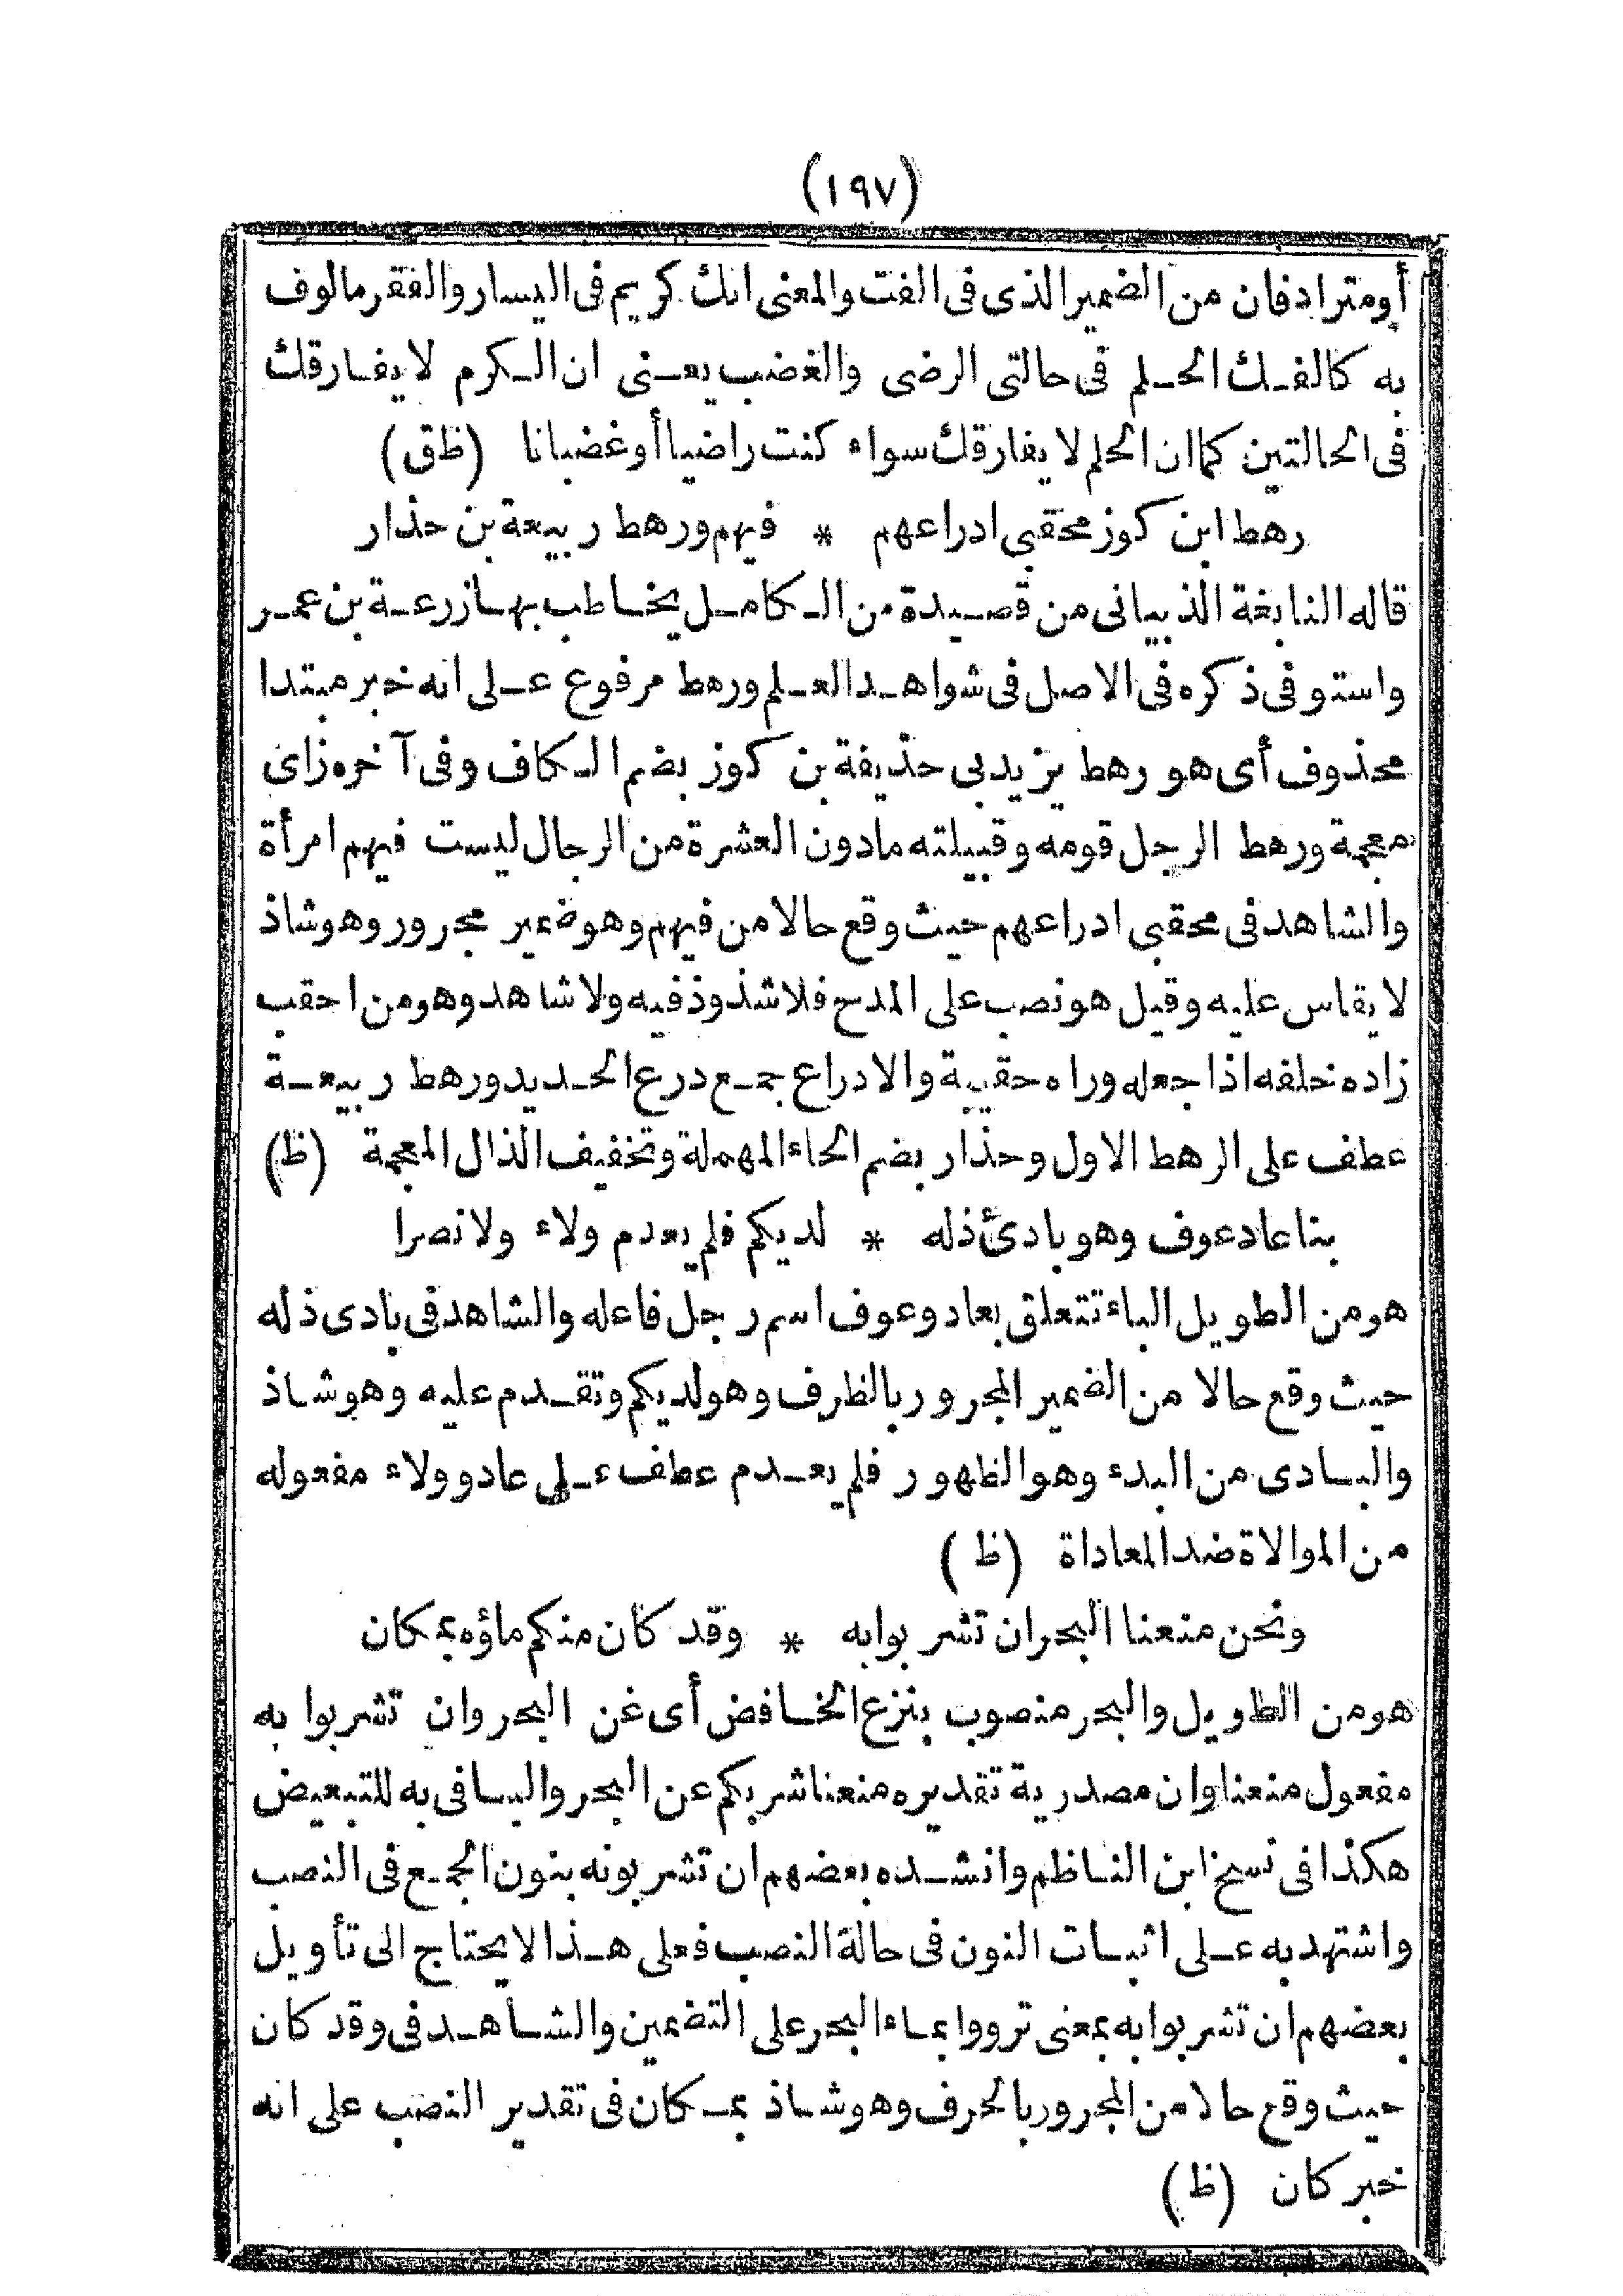 (١٩٧)
أومترادفان من الضمير الذى فى الفت والمعنى انك كريم فى اليسار والفقر مالوف
به كالفك الحلم فى حالتى الرضى والغضب يعنى ان الكرم لا يفارقك
فى الحالتين كما ان الحلم لا يفارقك سواء كنت راضيا أو غضبانا (ظق)
رهط ابن كوز محقبى ادراعهم * فيهم ورهط ربيعة بن حذار
قاله النابغة الذبيانى من قصيدة من الكامل يخاطب بها زرعة بن عمر
واستوفى ذكره فى الاصل فى شواهد العلم ورهط مرفوع على انه خبر مبتدا
محذوف أى هو رهط يزيد بى حذيفة بن كوز بضم الكاف وفى آخره زاى
معجمة ورهط الرجل قومه وقبيلته مادون العشرة من الرجال ليست فيهم امرأة
والشاهد فى محقبى ادراعهم حيث وقع حالا من فيهم وهو ضمير مجرور وهو شاذ
لا يقاس عليه وقيل هو نصب على المدح فلا شذوذ فيه ولا شاهد وهو من احقب
زاده خلفه اذا جعله وراه حقيبة والادراع جمع درع الحديد ورهط ربيعة
عطف على الرهط الاول وحذار بضم الحاء المهملة وتخفيف الذال المعجمة (ظ)
بنا عاد عوف وهو بادئ ذله * لديكم فلم يعدم ولاء ولا نصرا
هو من الطويل الباء تتعلق بعاد وعوف اسم رجل فاعله والشاهد فى بادى ذله
حيث وقع حالا من الضمير المجرور بالظرف وهو لديكم وتقدم عليه وهو شاذ
والبادى من البدء وهو الظهور فلم يعدم عطف على عاد وولاء مفعوله
من الموالاة ضد المعاداة (ظ)
ونحن منعنا البحر ان تشربوا به * وقد كان منكم ماؤه بمكان
هو من الطويل والبحر منصوب بنزع الخافض أى عن البحر وان تشربوا به
مفعول منعنا وان مصدرية تقديره منعنا شربكم عن البحر والبا فى به للتبعيض
هكذا فى نسخ ابن الناظم وانشده بعضهم ان تشربونه بنون الجمع فى النصب
واشتهد به على اثبات النون فى حالة النصب فعلى هذا لا يحتاج الى تأويل
بعضهم ان تشربوا به بمعنى ترووا بماء البحر على التضمين والشاهد فى وقد كان
حيث وقع حالا من المجرور بالحرف وهو شاذ بمكان فى تقدير النصب على انه
خبر كان (ظ)